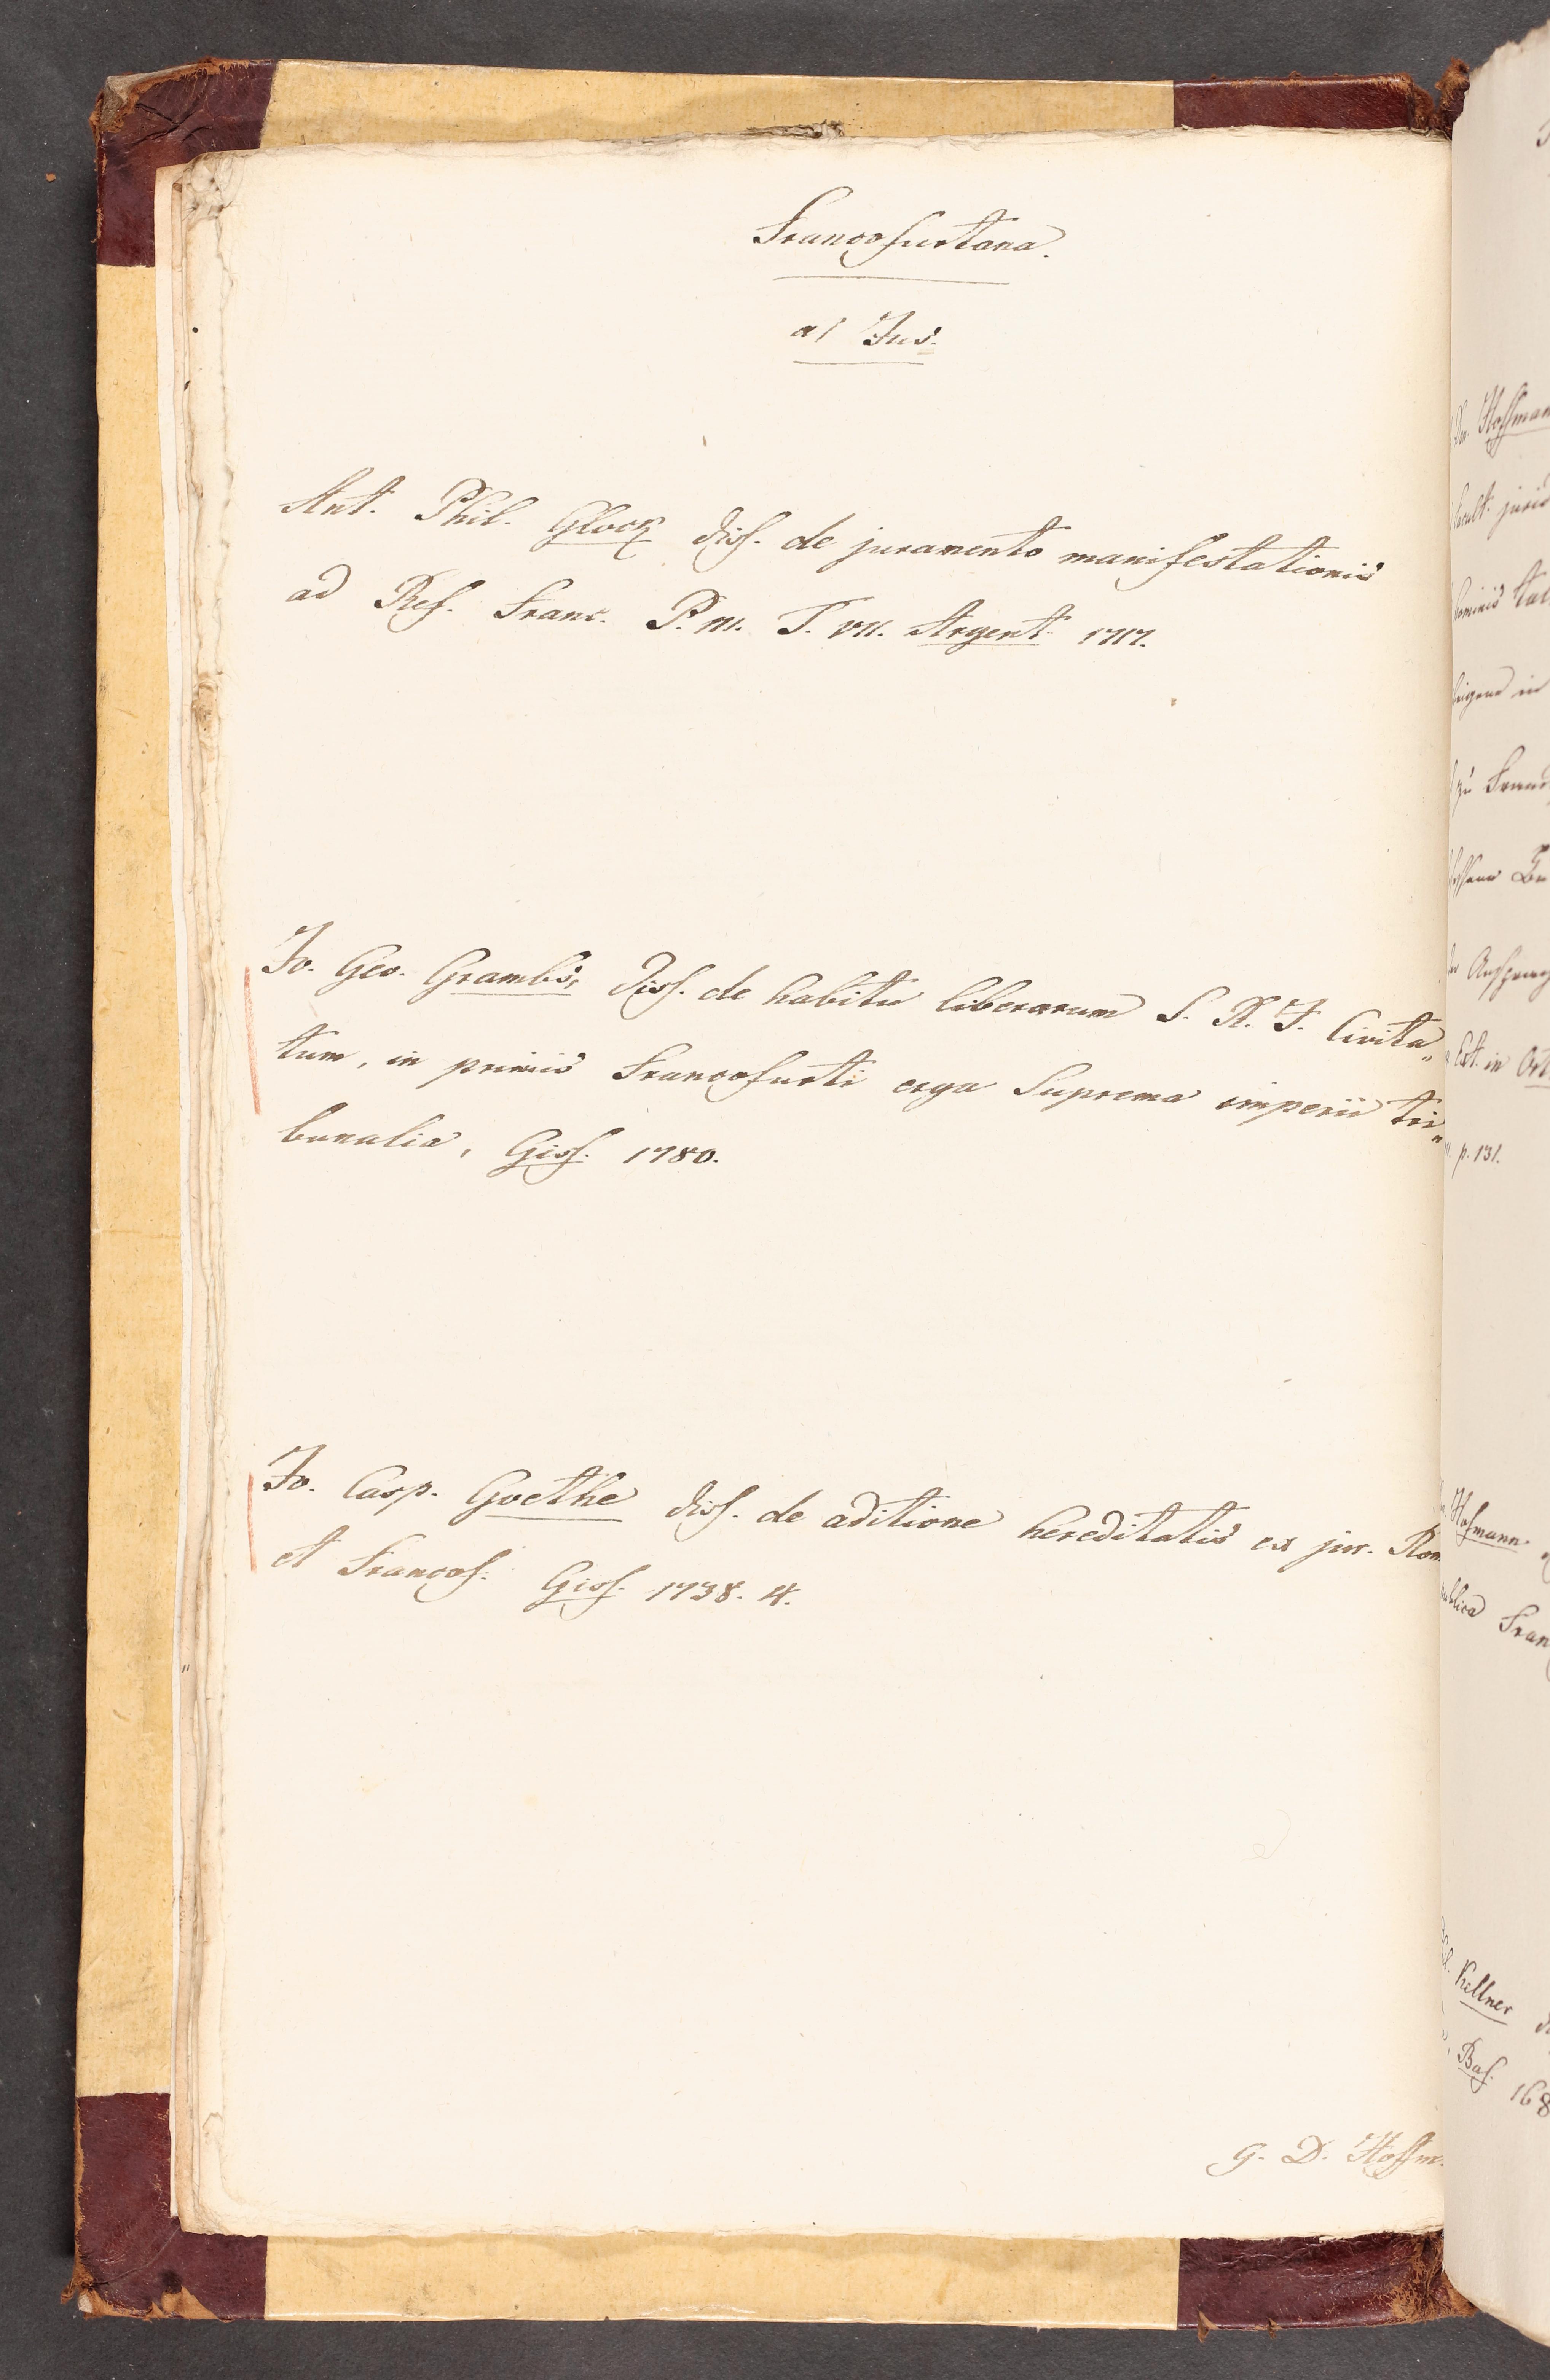 Francofurtana.
a/ Jus.
Ant. Phil. Glock diss. de juramento manifestationis
ad Ref. Franc. P. III. T. VII. Argent. 1717.
Jo. Geo. Grambs, diss. de habitu liberarum S. R. I. Civita„
tum, in primis Francofurti erga Suprema imperii tri„
bunalia, Giss. 1780.
Jo. Casp. Goethe diss. de aditione hereditatis ex jur. Rom.
et Francof. Giss. 1738. 4.
G. D. Hoffm.
Hoffman
jurid
in
zu
in
p. 131.
Hofmann
Fran
Kellner
Bas. 168